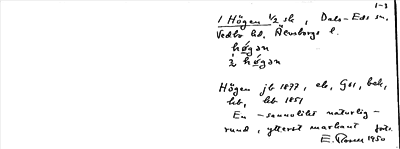 1-3
1 Högen ½ sk, Dals-Eds sn.
Vedbo hd. Älvsborgs l.
högən
2 högən
Högen jb 1877, eb, Gs1, bek,
hb, kb 1851
En sannolikt naturlig
rund, ytterst markant
E. 1950